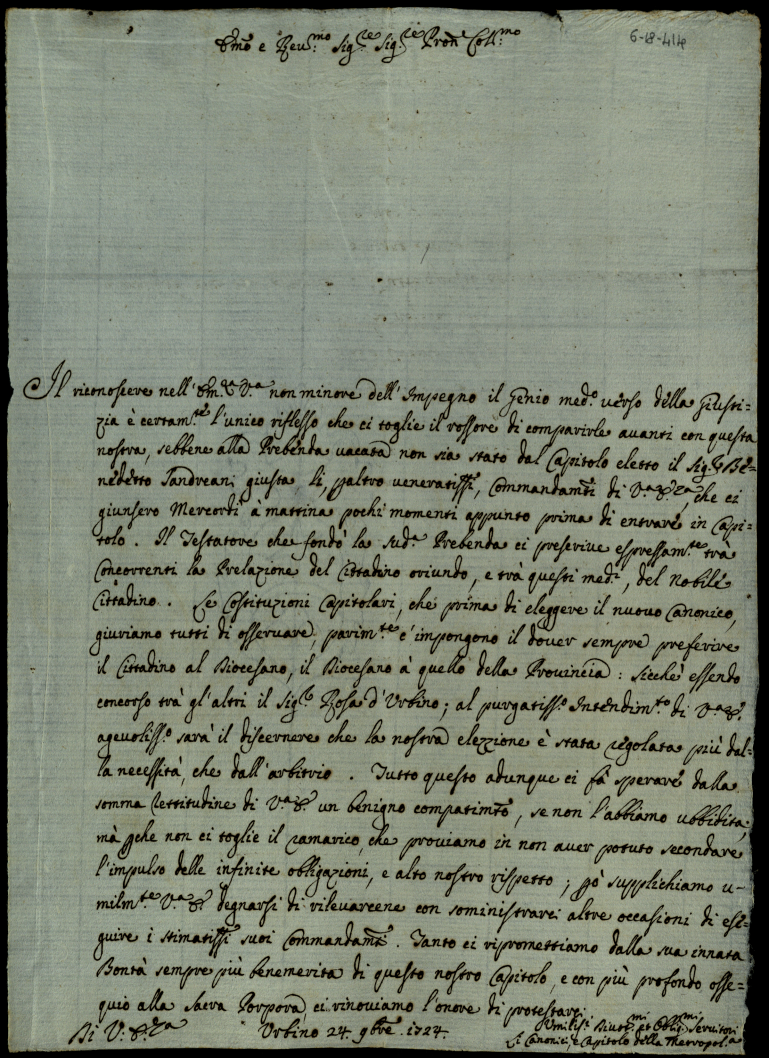 6-18-414
Emo e Rev:mo Sig:re Sig:re Pron Coll:mo
Il riconoscere nell'Em:a V:a non minore dell'Impegno il genio med:o verso della giusti=
zia è certam:te l'unico riflesso che ci toglie il rossore di comparirle avanti con questa
nostra, sebbene alla Prebenda vacata non sia stato dal Capitolo eletto il Sig:r Be=
nedetto Tandreani giusta li, p altro veneratissi, Commandamti di V:a E:za, che ci
giunsero Mercordì à mattina pochi momenti appunto prima di entrare in Capi=
tolo. Il Testatore che fondò la sud:a Prebenda ci prescrive espressam:te trà
Concorrenti la Prelazione del Cittadino oriundo, e trà questi med:i, del Nobile
Cittadino. Le Costituzioni Capitolari, che prima di eleggere il nuovo Canonico,
giuriamo tutti di osservare, parim:te c'impongono il dover sempre preferire
il Cittadino al Diocesano, il Diocesano à quello della Provincia: sicchè essendo
concorso trà gl'altri il Sig:r Rosa d'Urbino; al purgatiss:o Intendim:to di V:a E:
agevoliss:o sarà il discernere che la nostra elezzione è stata regolata più dal-
la necessità, che dall'arbitrio. Tutto questo adunque ci fà sperare dalla
somma rettitudine di V:a E: un benigno compatimto, se non l'abbiamo ubbidita;
mà pche non ci toglie il ramarico, che proviamo in non aver potuto secondare
l'impulso delle infinite obligazioni, e alto nostro rispetto; pò supplichiamo u-
milm:te V:a E: degnarsi di rilevarcene con somministrarci altre occasioni di ese-
guire i stimatissi suoi Commandamti. Tanto ci ripromettiamo dalla sua innata
Bontà sempre più benemerita di questo nostro Capitolo, e con più profondo osse=
quio alla Sacra Porpora, ci rinoviamo l'onore di protestarci
Di V: E:za Urbino 24 9bre 1724.
Umiliss:i Divot:mi et Oblig:mi Servitori
Li Canonici, e Capitolo della Metropol:a